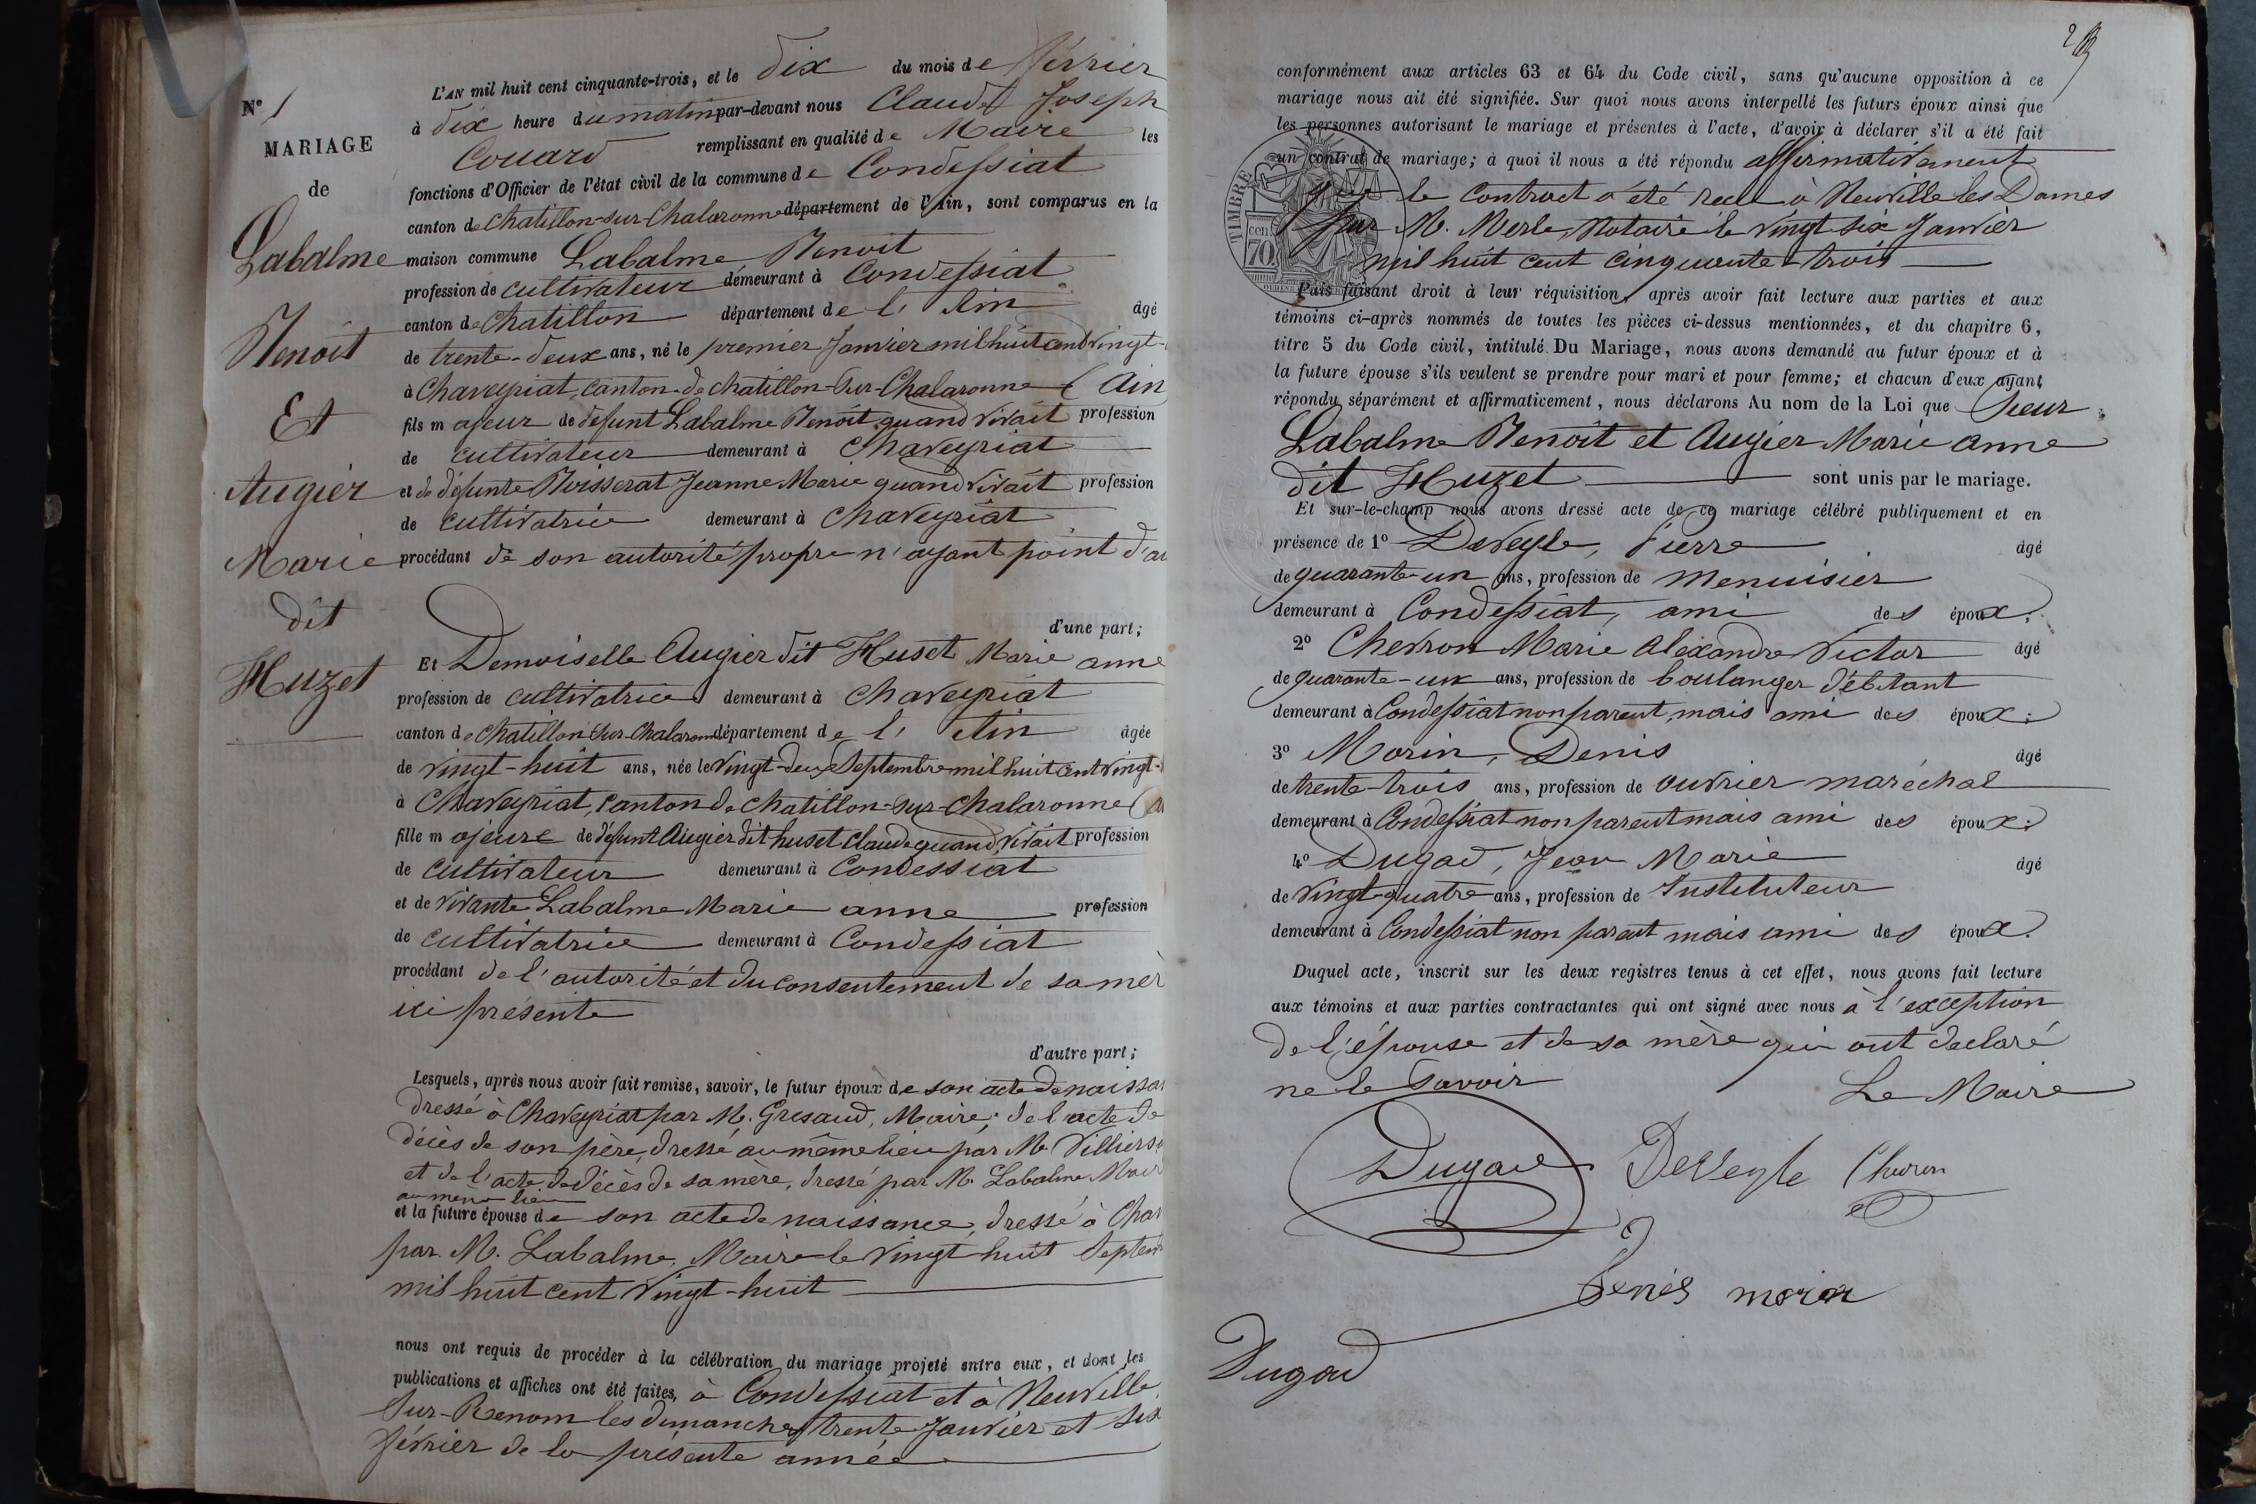 N° 1
MARIAGE
de
Labalme
Benoit
Et
Augier
Marie
dit
Huzet
L'AN mil huit cent cinquante-trois, et le dix du mois de février
à dix heure du matin par-devant nous Claude Joseph
Couard remplissant en qualité de Maire les
fonctions d'Officier de l'état civil de la commune de Condessiat
canton de Chatillon-sur-Chalaronne département de l'Ain, sont comparus en la
maison commune Labalme, Benoit
profession de cultivateur demeurant à Condessiat
canton de Chatillon département de l'Ain âgé
de trente-deux ans, né le premier Janvier mil huit cent vingt-
à Chaveyriat, canton de Chatillon-Sur-Chalaronne (Ain
fils majeur de défunt Labalme Benoit quand vivait profession
de cultivateur demeurant à Chaveyriat
et de défunte Boisserat Jeanne Marie quand vivait profession
de cultivatrice demeurant à Chaveyriat
procédant de son autorité propre n'ayant point d'
d'une part;
Et Demoiselle Augier dit Huset Marie anne
profession de cultivatrice demeurant à Chaveyriat
canton de Chatillon Sur-Chalaronne département de l'Ain âgée
de vingt-huit ans, née le vingt-deux Septembre mil huit cent vingt-
à Chaveyriat, Canton de Chatillon-sur-Chalaronne
fille majeure de défunt Augier dit huset Claude quand vivait profession
de cultivateur demeurant à Condessiat
et de vivante Labalme Marie anne profession
de cultivatrice demeurant à Condessiat
procédant de l'autorité et du consentement de sa mèr
ici présente
d'autre part;
Lesquels, après nous avoir fait remise, savoir, le futur époux de son acte de naissa
dressé à Chaveyriat par M. Gresaud, Maire; de l'acte de
décès de son père, dressé au même lieu par M. Villiers
et de l'acte de décès de sa mère, dressé par M. Labalme Mair
au même lieu
et la future épouse de son acte de naissance, dressé à Chav
par M. Labalme, Maire le vingt huit Septem
mil huit cent vingt-huit
nous ont requis de procéder à la célébration du mariage projeté entre eux, et dont les
publications et affiches ont été faites, à Condessiat et à Neuville
Sur-Renom les dimanches trente Janvier et six
février de la présente année
conformément aux articles 63 et 64 du Code civil, sans qu'aucune opposition à ce
mariage nous ait été signifiée. Sur quoi nous avons interpellé les futurs époux ainsi que
les personnes autorisant le mariage et présentes à l'acte, d'avoir à déclarer s'il a été fait
un contrat de mariage; à quoi il nous a été répondu affirmativement
que le contract a été recu à Neuville les Dames
par M. Merle, Notaire le vingt-six Janvier
mil huit cent cinquante-trois
TIMBRE
cen.
70
Puis faisant droit à leur réquisition, après avoir fait lecture aux parties et aux
témoins ci-après nommés de toutes les pièces ci-dessus mentionnées, et du chapitre 6,
titre 5 du Code civil, intitulé Du Mariage, nous avons demandé au futur époux et à
la future épouse s'ils veulent se prendre pour mari et pour femme; et chacun d'eux ayant
répondu séparément et affirmativement, nous déclarons Au nom de la Loi que Sieur
Labalme Benoit et Augier Marie anne
dit Huzet sont unis par le mariage.
Et sur-le-champ nous avons dressé acte de ce mariage célébré publiquement et en
présence de 1° Deveyle, Pierre âgé
de quarante-un ans, profession de Menuisier
demeurant à Condessiat, ami des époux;
2° Chevron Marie Alexandre Victor âgé
de quarante-un ans, profession de boulanger débitant
demeurant à Condessiat non parent, mais ami des époux;
3° Morin, Denis âgé
de trente-trois ans, profession de ouvrier maréchal
demeurant à Condessiat non parent mais ami des époux;
4° Dugad, Jean Marie âgé
de vingt-quatre ans, profession de Instituteur
demeurant à Condessiat non parent mais ami des époux.
Duquel acte, inscrit sur les deux registres tenus à cet effet, nous avons fait lecture
aux témoins et aux parties contractantes qui ont signé avec nous à l'exception
de l'épouse et de sa mère qui ont déclaré
ne le savoir Le Maire
Dugad DeVeyle Chevron
Denis morin
Dugad